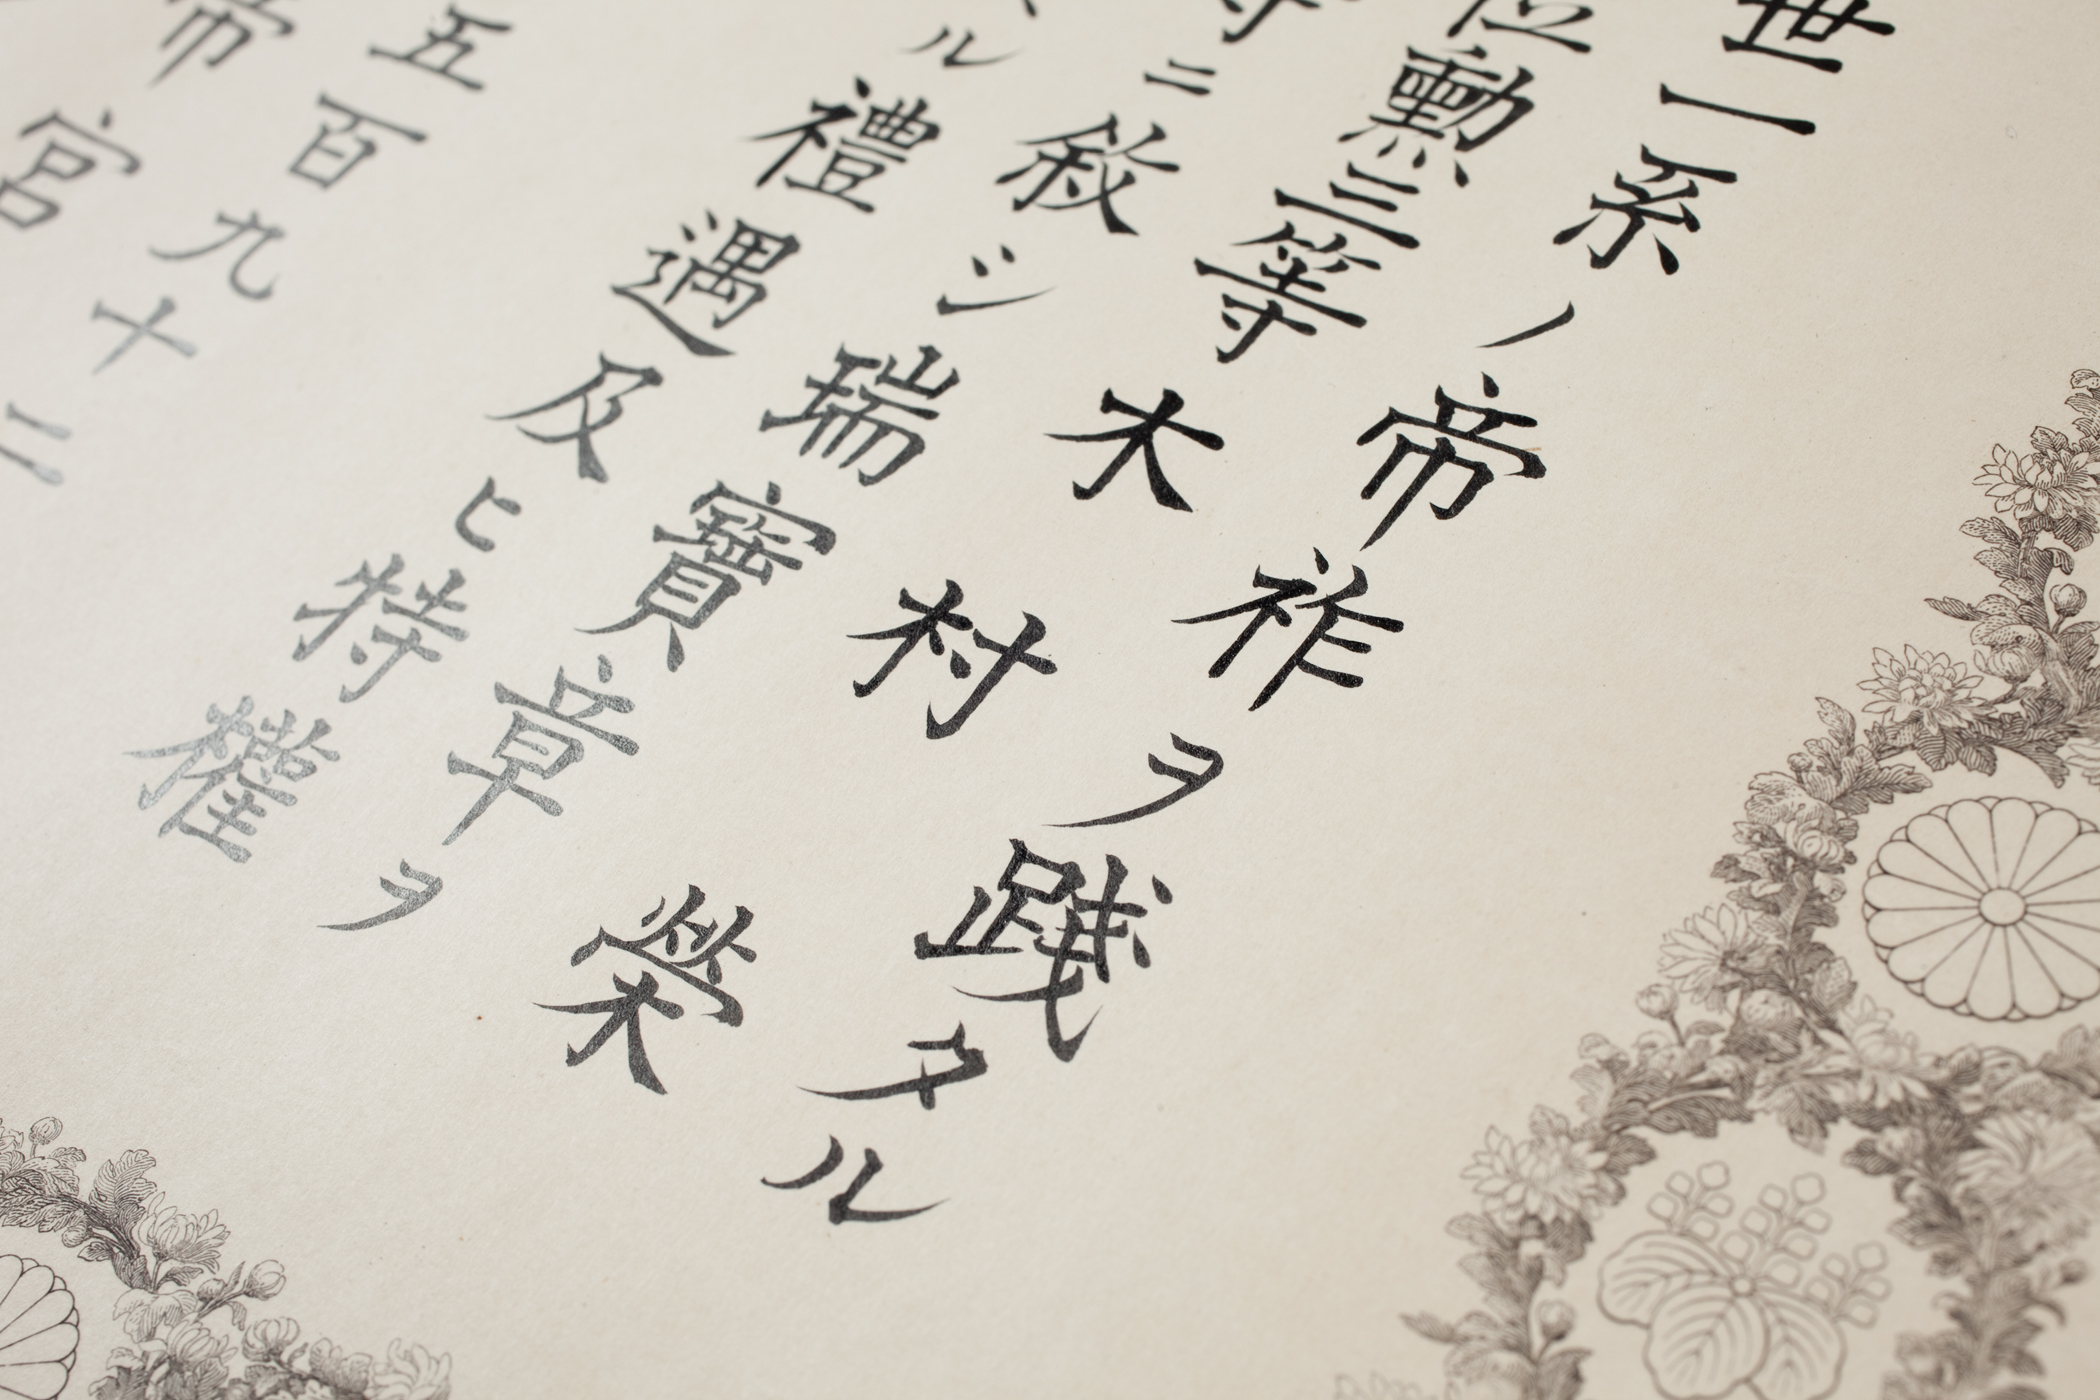 世一系ノ帝祚ヲ踐タル
位勲三等木村榮
等ニ敘シ瑞寶章ヲ
ル禮遇及ヒ特權
五百九十二
帝宮